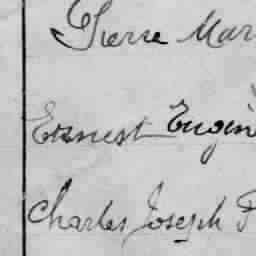 Pierre Mar
Ernest Eugèn
Charles Joseph F